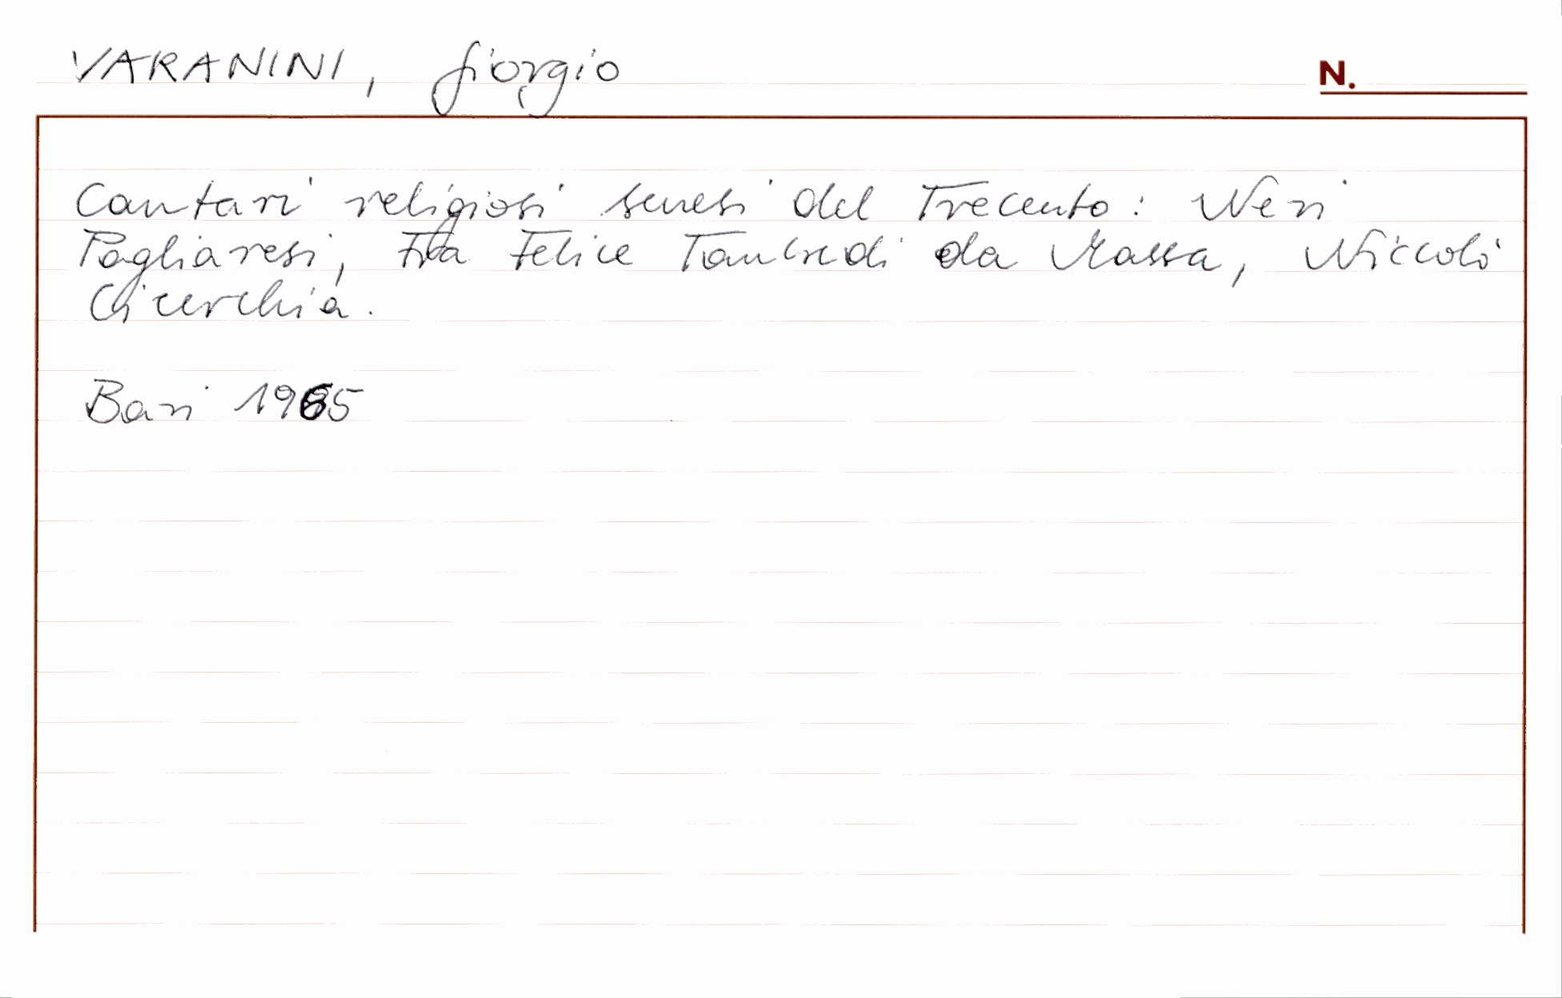 VARANINI, Giorgio
N.
Cantari religiosi senesi del Trecento: Neri
Pagliaresi, Fra Felice Tancredi da Massa, Niccolò
Cicerchia.
Bari 1965